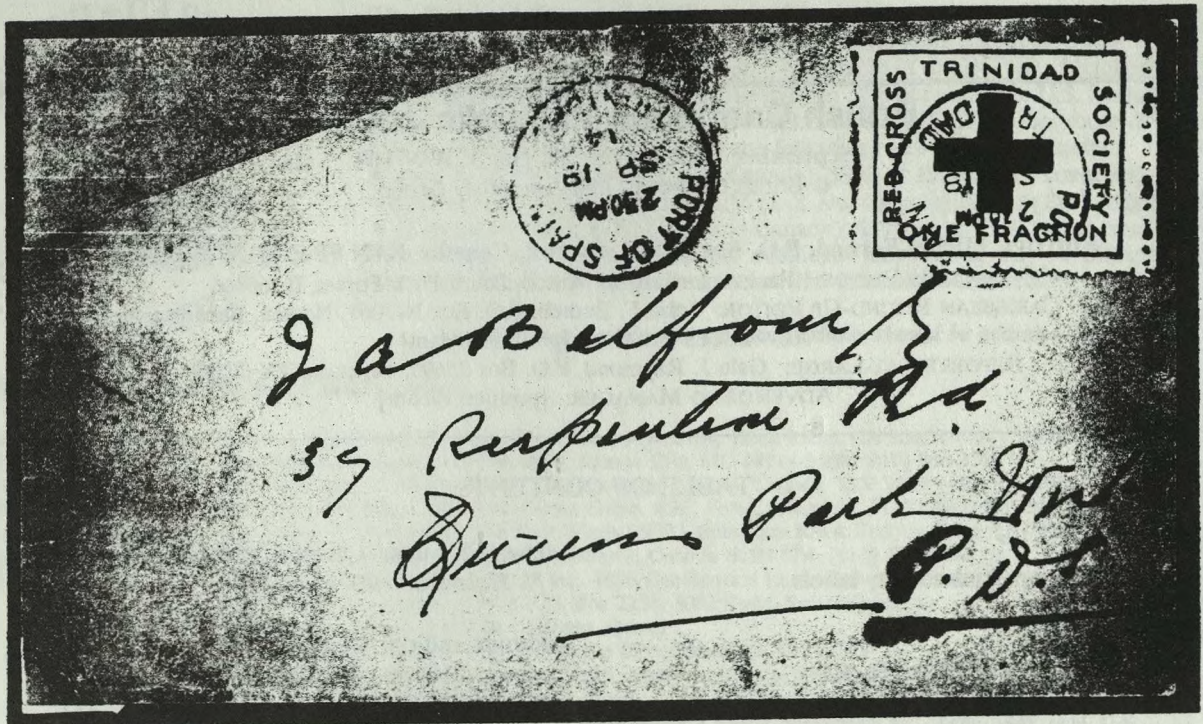 TRINIDAD
RED CROSS
SOCIETY
ONE FRACTION
PORT OF SPAIN
2 30 PM
SP 18
14
J a Balfour
37 Serpentine Rd
Queens Park
P.O.S